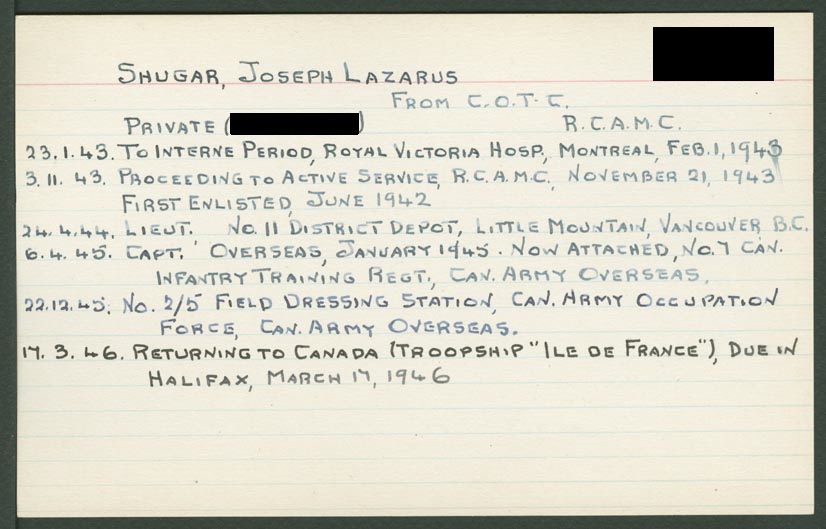 SHUGAR, JOSEPH LAZARUS
FROM C.O.T.C.
PRIVATE ( ) R.C.A.M.C.
23.1.43. TO INTERNE PERIOD, ROYAL VICTORIA HOSP., MONTREAL, FEB.1, 1943
3.11.43. PROCEEDING TO ACTIVE SERVICE, R.C.A.M.C., NOVEMBER 21, 1943
FIRST ENLISTED, JUNE 1942
24.4.44. LIEUT. NO. 11 DISTRICT DEPOT, LITTLE MOUNTAIN, VANCOUVER B.C.
6.4.45. CAPT. OVERSEAS, JANUARY 1945. NOW ATTACHED, NO.7 CAN.
INFANTRY TRAINING REGT., CAN. ARMY OVERSEAS.
22.12.45. NO. 2/5 FIELD DRESSING STATION, CAN. ARMY OCCUPATION
FORCE, CAN. ARMY OVERSEAS.
17.3.46. RETURNING TO CANADA (TROOPSHIP "ILE DE FRANCE"), DUE IN
HALIFAX, MARCH 17, 1946